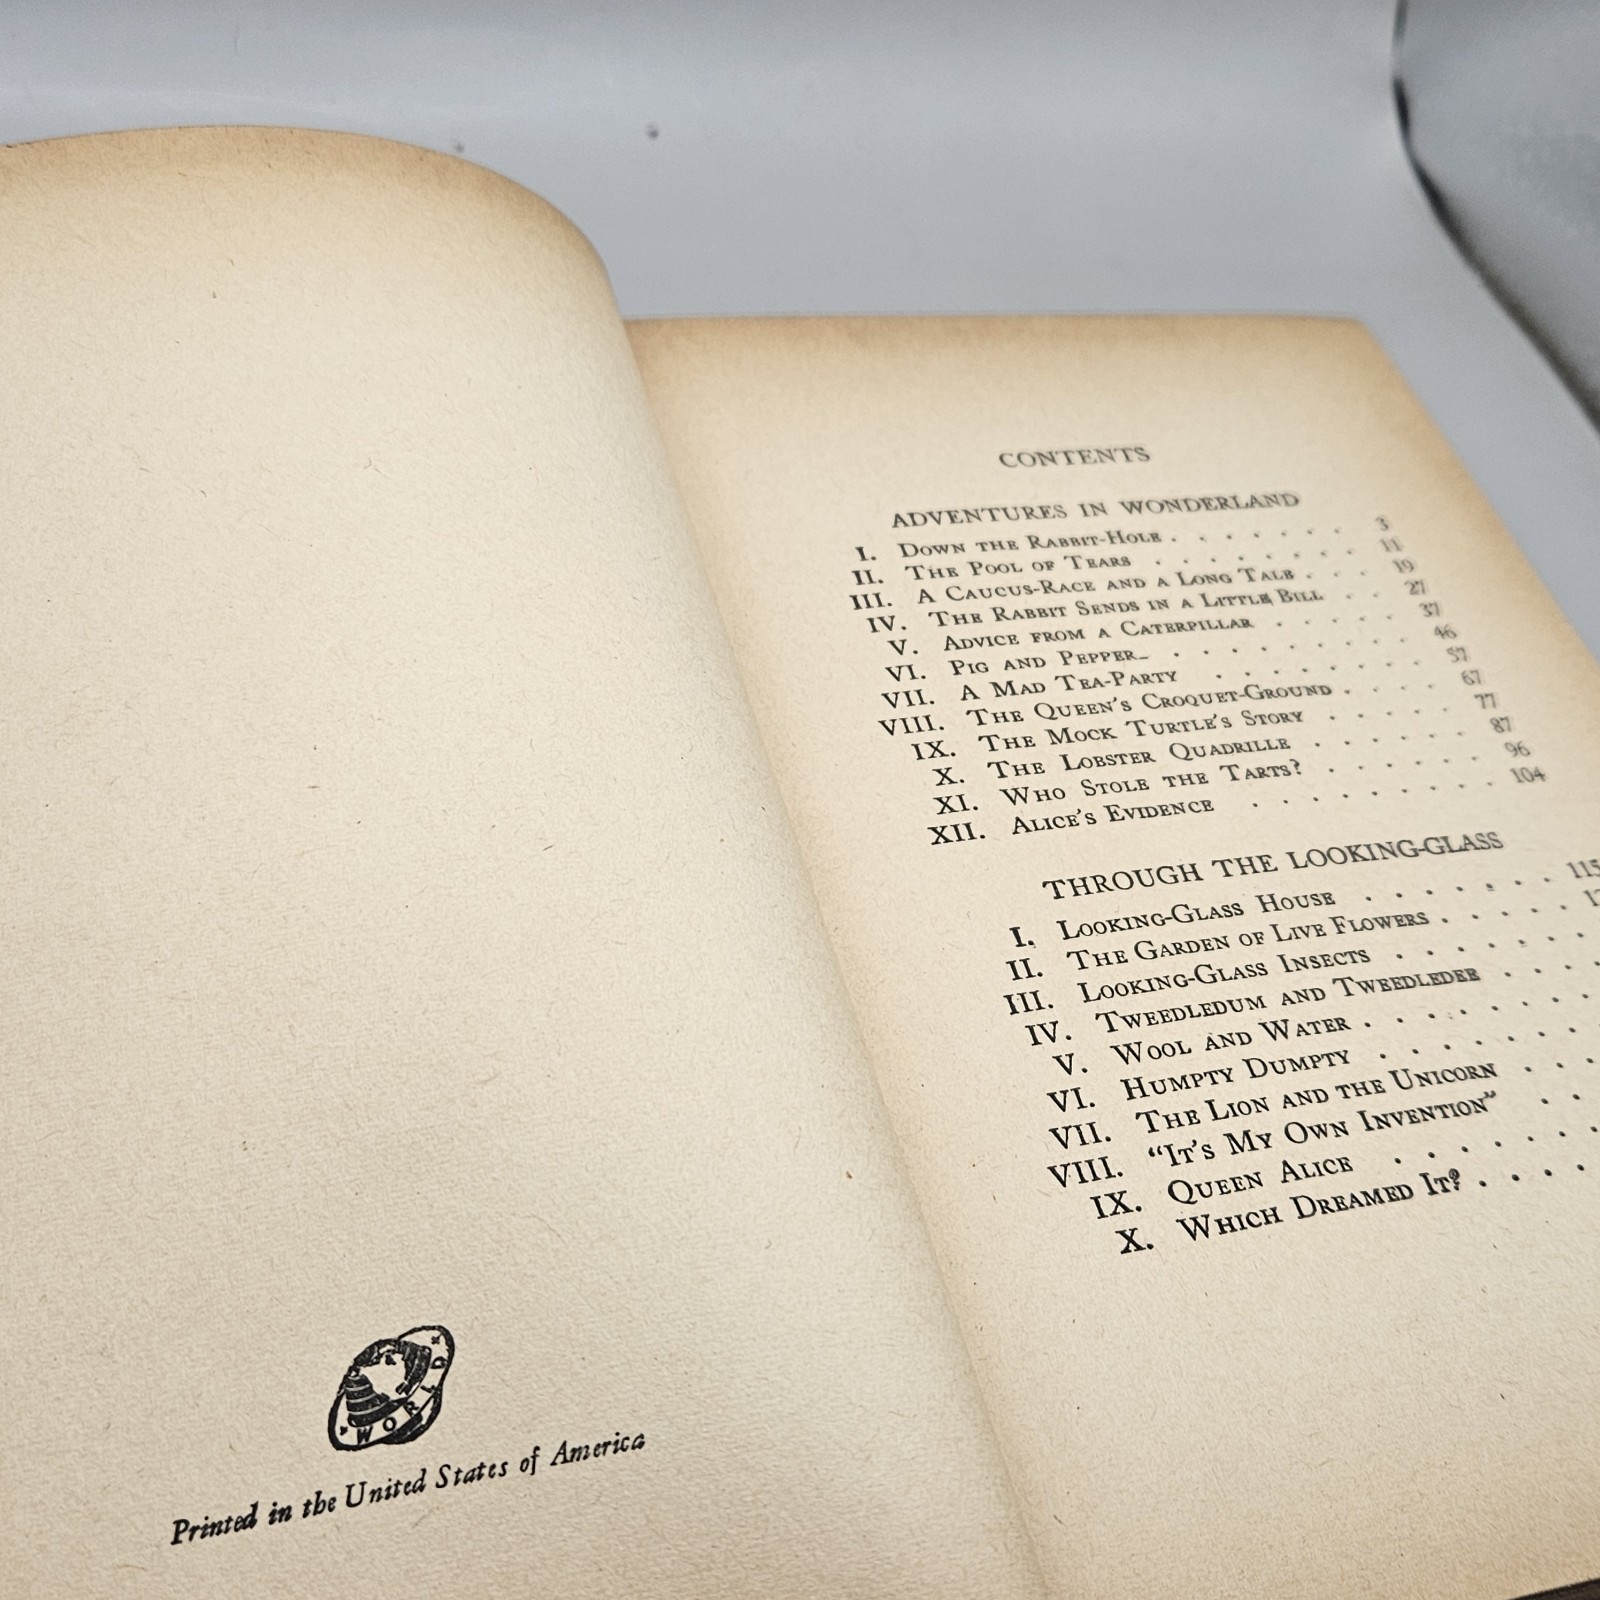 WORLD
Printed in the United States of America
CONTENTS
ADVENTURES IN WONDERLAND
I. DOWN THE RABBIT-HOLE . . . . . . . 3
II. THE POOL OF TEARS . . . . . . . . 11
III. A CAUCUS-RACE AND A LONG TALE . . . 19
IV. THE RABBIT SENDS IN A LITTLE BILL . . 27
V. ADVICE FROM A CATERPILLAR . . . . . 37
VI. PIG AND PEPPER . . . . . . . . . 46
VII. A MAD TEA-PARTY . . . . . . . . 57
VIII. THE QUEEN'S CROQUET-GROUND . . . . 67
IX. THE MOCK TURTLE'S STORY . . . . . 77
X. THE LOBSTER QUADRILLE . . . . . . 87
XI. WHO STOLE THE TARTS? . . . . . . 96
XII. ALICE'S EVIDENCE . . . . . . . . . 104
THROUGH THE LOOKING-GLASS
I. LOOKING-GLASS HOUSE . . . . . . . 115
II. THE GARDEN OF LIVE FLOWERS . . . . .
III. LOOKING-GLASS INSECTS . . . . . . .
IV. TWEEDLEDUM AND TWEEDLEDEE . . . .
V. WOOL AND WATER . . . . . . . .
VI. HUMPTY DUMPTY . . . . . . . .
VII. THE LION AND THE UNICORN . . .
VIII. "IT'S MY OWN INVENTION" . .
IX. QUEEN ALICE . . . . . . .
X. WHICH DREAMED IT? . . . .